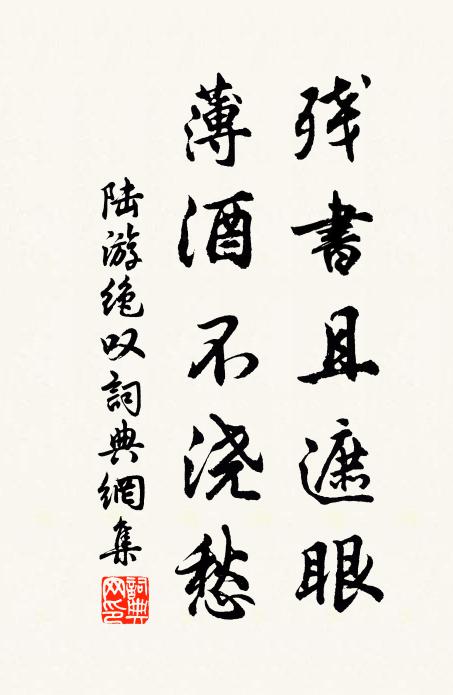 残書且遮眼
薄酒不浇愁
陆游绝叹詞典網集
詞典网印